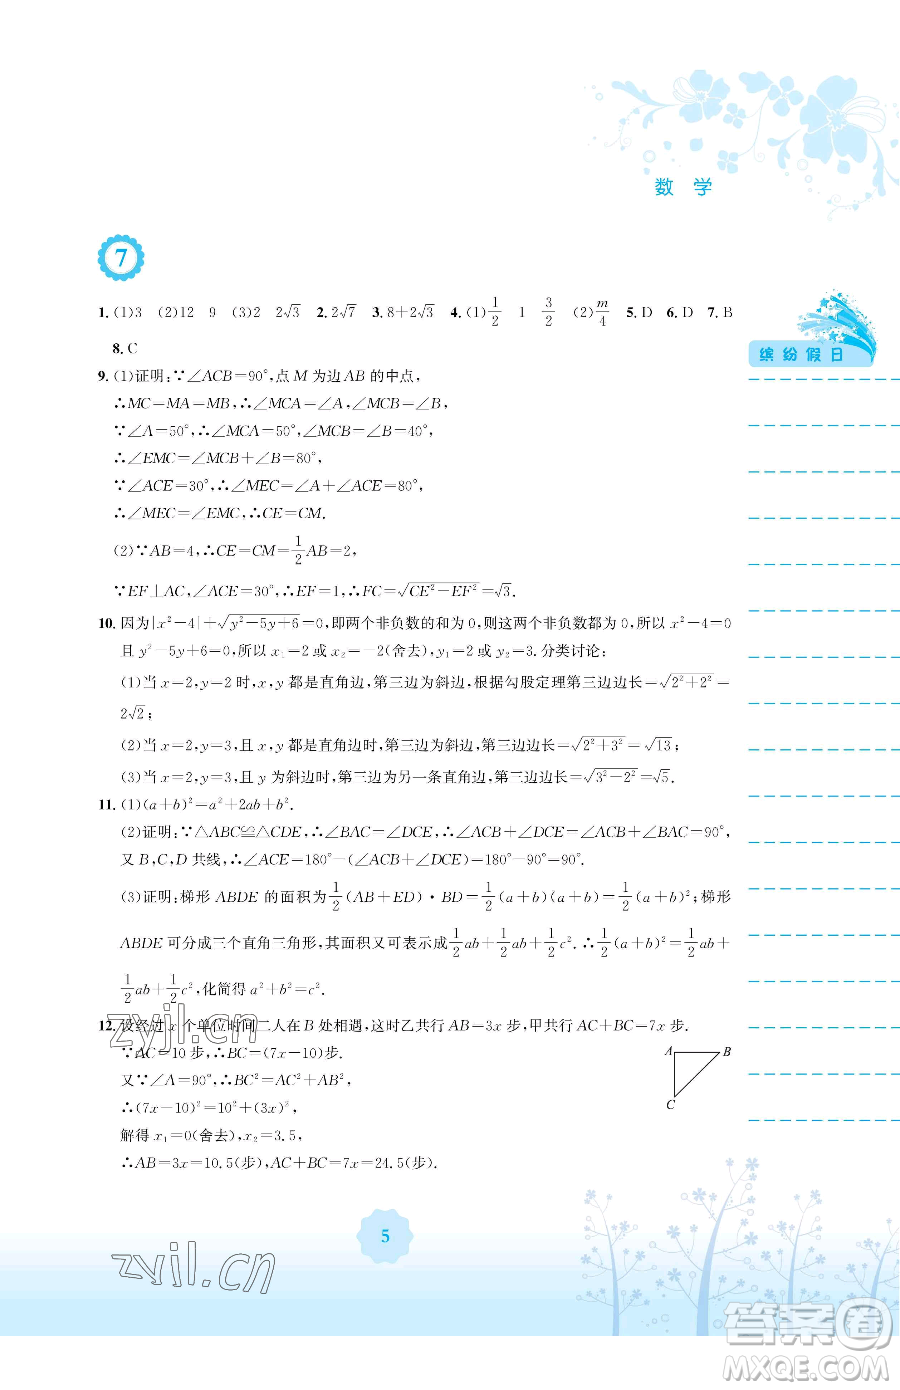 数 学
7
缤纷假日
1. (1)3 (2)12 9 (3)2 2√3 2. 2√7 3. 8+2√3 4. (1)1/2 1 3/2 (2)m/4 5. D 6. D 7. B
8. C
9. (1)证明:∵∠ACB=90°,点 M 为边 AB 的中点,
∴MC=MA=MB,∴∠MCA=∠A,∠MCB=∠B,
∵∠A=50°,∴∠MCA=50°,∠MCB=∠B=40°,
∴∠EMC=∠MCB+∠B=80°,
∵∠ACE=30°,∴∠MEC=∠A+∠ACE=80°,
∴∠MEC=∠EMC,∴CE=CM.
(2)∵AB=4,∴CE=CM=1/2AB=2,
∵EF⊥AC,∠ACE=30°,∴EF=1,∴FC=√(CE²-EF²)=√3.
10. 因为|x²-4|+√(y²-5y+6)=0,即两个非负数的和为 0,则这两个非负数都为 0,所以 x²-4=0
且 y²-5y+6=0,所以 x₁=2 或 x₂=-2(舍去),y₁=2 或 y₂=3.分类讨论:
(1)当 x=2,y=2 时,x,y 都是直角边,第三边为斜边,根据勾股定理第三边边长=√(2²+2²)=
2√2;
(2)当 x=2,y=3,且 x,y 都是直角边时,第三边为斜边,第三边边长=√(2²+3²)=√13;
(3)当 x=2,y=3,且 y 为斜边时,第三边为另一条直角边,第三边边长=√(3²-2²)=√5.
11. (1)(a+b)²=a²+2ab+b².
(2)证明:∵△ABC≌△CDE,∴∠BAC=∠DCE,∴∠ACB+∠DCE=∠ACB+∠BAC=90°,
又 B,C,D 共线,∴∠ACE=180°-(∠ACB+∠DCE)=180°-90°=90°.
(3)证明:梯形 ABDE 的面积为1/2(AB+ED)·BD=1/2(a+b)(a+b)=1/2(a+b)²;梯形
ABDE 可分成三个直角三角形,其面积又可表示成1/2ab+1/2ab+1/2c².∴1/2(a+b)²=1/2ab+
1/2ab+1/2c²,化简得 a²+b²=c².
12. 设经过 x 个单位时间二人在 B 处相遇,这时乙共行 AB=3x 步,甲共行 AC+BC=7x 步.
∵AC=10 步,∴BC=(7x-10)步.
又∵∠A=90°,∴BC²=AC²+AB²,
∴(7x-10)²=10²+(3x)²,
解得 x₁=0(舍去),x₂=3.5,
∴AB=3x=10.5(步),AC+BC=7x=24.5(步).
A B
C
zyjl.cn
5
zyjl.cn
答案圈
MXQE.COM